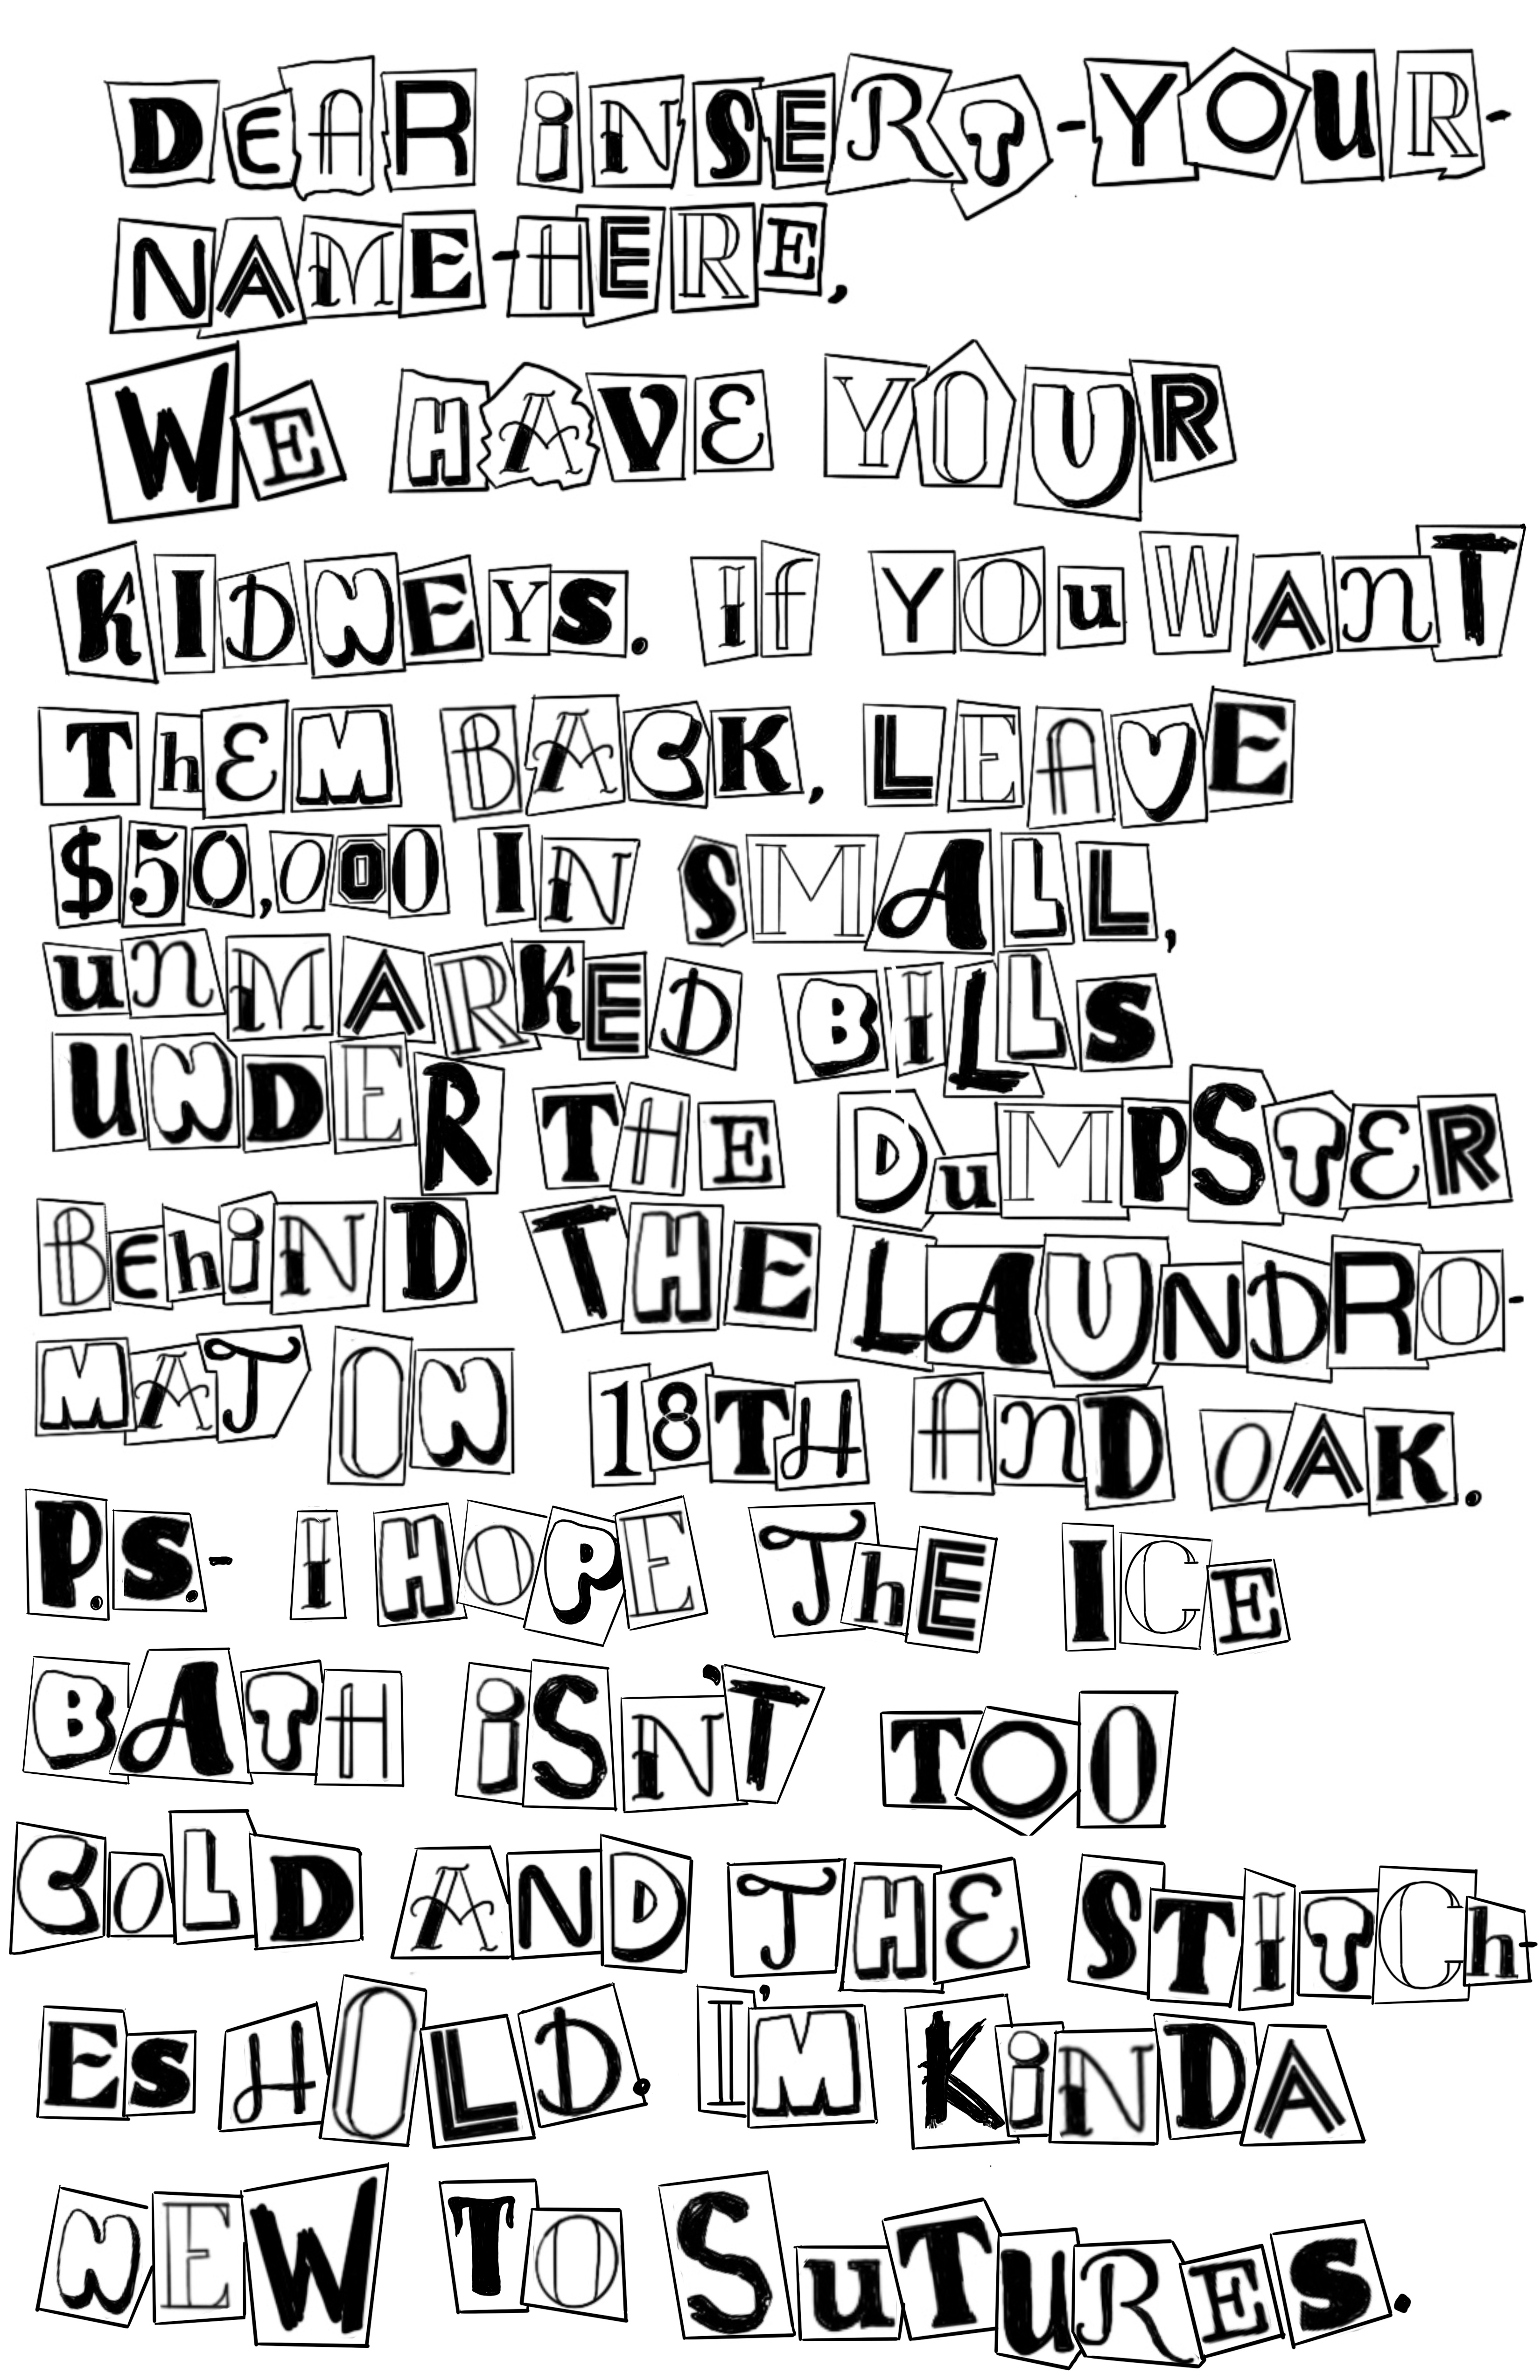 DEAR iNSERT-YOUR-
NAME-HERE,
WE HAVE YOUR
KIDNEYS. If YOu WAnT
ThEM BACK, LEAVE
$50,000 IN SMALL,
unMARKED BILLS
UNDER THE DuMPSTER
BEhiND THE LAUNDRO-
MAT ON 18TH AnD OAK.
P.S.- I HOPE ThE ICE
BATH iSN'T TOO
COLD AND THE STITCh-
Es HOLD. I'M KiNDA
NEW TO SuTURES.